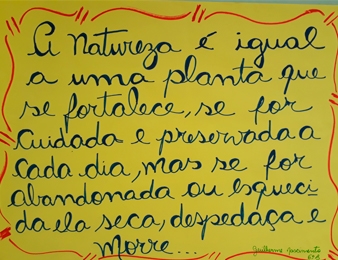 A natureza é igual
a uma planta que
se fortalece, se for
cuidada e preservada a
cada dia, mas se for
abandonada ou esqueci-
da ela seca, despedaça e
morre...
Guilherme Nascimento